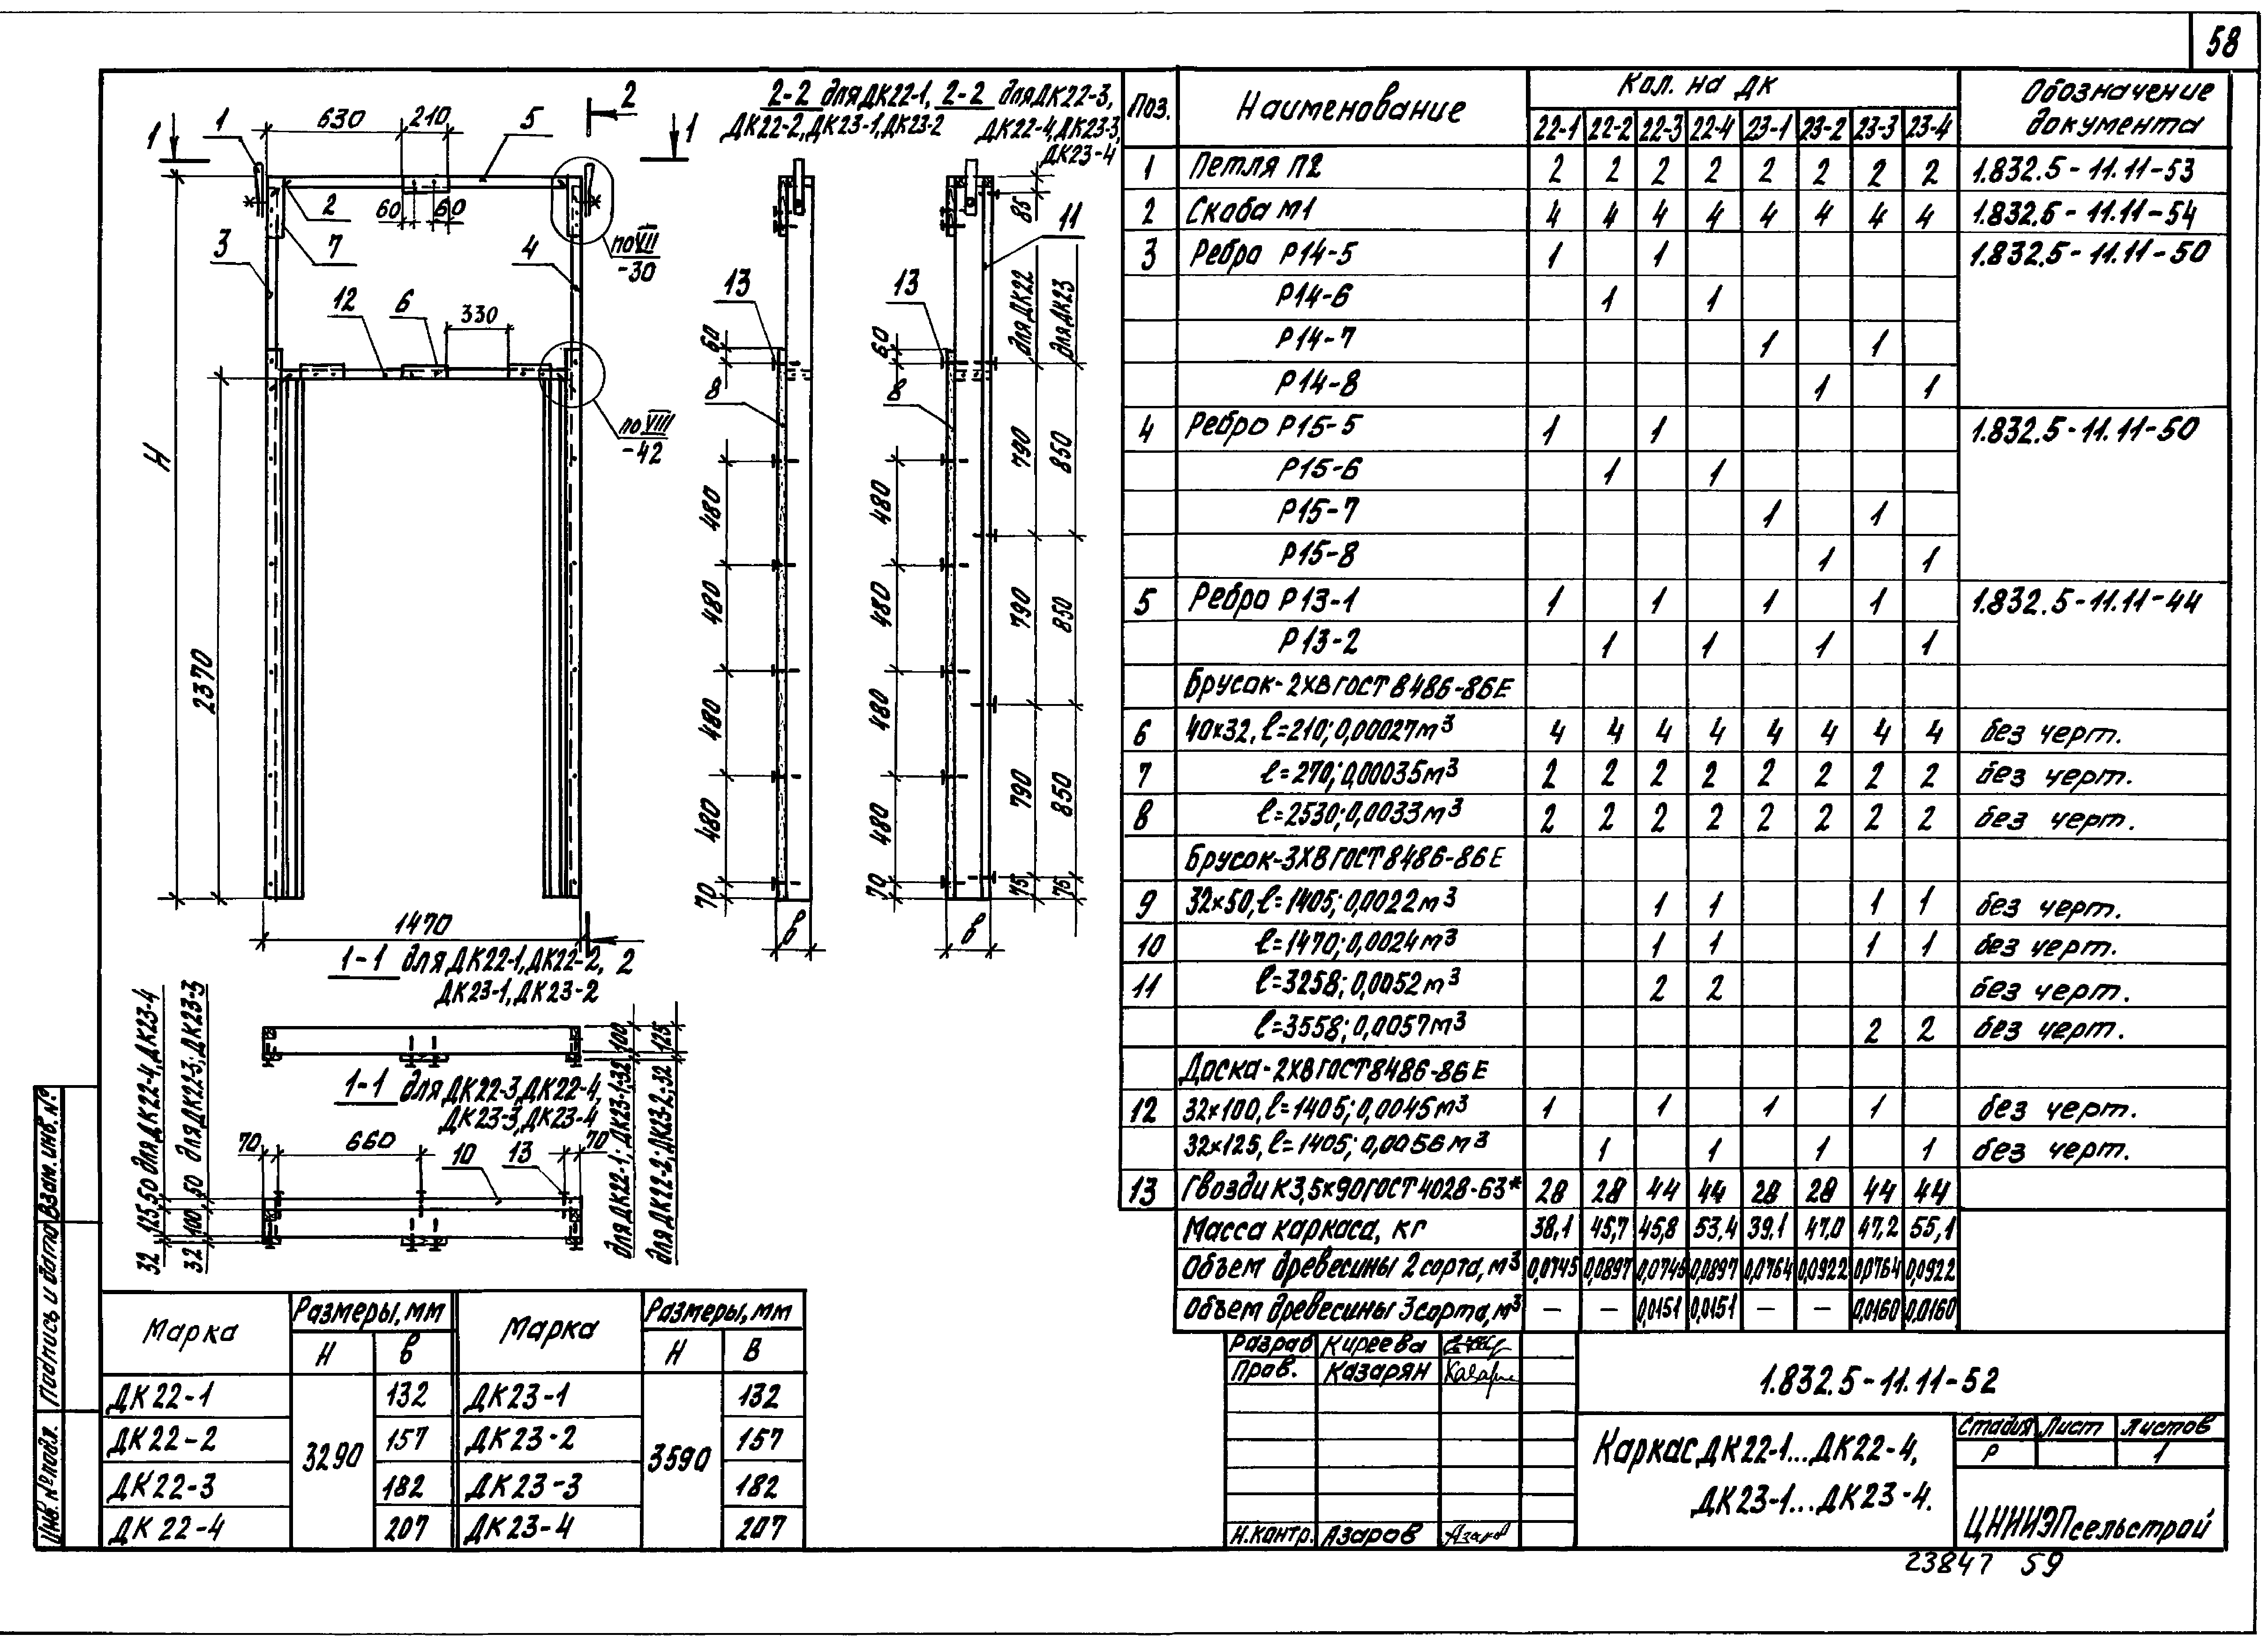 58
2-2 для ДК22-1, ДК22-2, ДК23-1, ДК23-2
2-2 для ДК22-3, ДК22-4, ДК23-3, ДК23-4
1 1 630 210 5 2 1
60 60 2 7 3 4
по VII
-30
12 6 330
по VIII
-42
H 2370 1470 2
13 60 8 480 480 480 480 70 в
13 60 8 480 480 480 480 70 в
85 11 для ДК22 для ДК23
790 850
790 850
790 850
75 75
1-1 для ДК22-1, ДК22-2,
ДК23-1, ДК23-2
1-1 для ДК22-3, ДК22-4,
ДК23-3, ДК23-4
70 660 10 13 70
32 125 50 для ДК22-4, ДК23-4
32 100 50 для ДК22-3; ДК23-3
для ДК22-1; ДК23-1; 32 100
для ДК22-2; ДК23-2; 32 125
Марка Размеры, мм Марка Размеры, мм
H в H В
ДК22-1 3290 132 ДК23-1 3590 132
ДК22-2 157 ДК23-2 157
ДК22-3 182 ДК23-3 182
ДК22-4 207 ДК23-4 207
Поз. Наименование Кол. на ДК Обозначение документа
22-1 22-2 22-3 22-4 23-1 23-2 23-3 23-4
1 Петля П2 2 2 2 2 2 2 2 2 1.832.5-11.11-53
2 Скоба М1 4 4 4 4 4 4 4 4 1.832.5-11.11-54
3 Ребро Р14-5 1 1 1.832.5-11.11-50
Р14-6 1 1
Р14-7 1 1
Р14-8 1 1
4 Ребро Р15-5 1 1 1.832.5-11.11-50
Р15-6 1 1
Р15-7 1 1
Р15-8 1 1
5 Ребро Р13-1 1 1 1 1 1.832.5-11.11-44
Р13-2 1 1 1 1
Брусок-2ХВ ГОСТ 8486-86Е
6 40х32, ℓ=210; 0,00027м³ 4 4 4 4 4 4 4 4 без черт.
7 ℓ=270; 0,00035м³ 2 2 2 2 2 2 2 2 без черт.
8 ℓ=2530; 0,0033м³ 2 2 2 2 2 2 2 2 без черт.
Брусок-3ХВ ГОСТ 8486-86Е
9 32х50, ℓ=1405; 0,0022м³ 1 1 1 1 без черт.
10 ℓ=1470; 0,0024м³ 1 1 1 1 без черт.
11 ℓ=3258; 0,0052м³ 2 2 без черт.
ℓ=3558; 0,0057м³ 2 2 без черт.
Доска-2ХВ ГОСТ 8486-86Е
12 32х100, ℓ=1405; 0,0045м³ 1 1 1 1 без черт.
32х125, ℓ=1405; 0,0056м³ 1 1 1 1 без черт.
13 Гвозди К3,5х90 ГОСТ 4028-63* 28 28 44 44 28 28 44 44
Масса каркаса, кг 38,1 45,7 45,8 53,4 39,1 47,0 47,2 55,1
Объем древесины 2 сорта, м³ 0,0745 0,0897 0,0745 0,0897 0,0764 0,0922 0,0764 0,0922
Объем древесины 3 сорта, м³ – – 0,0151 0,0151 – – 0,0160 0,0160
Разраб Киреева
Пров. Казарян
Н.контр. Азаров
1.832.5-11.11-52
Каркас ДК22-1...ДК22-4,
ДК23-1...ДК23-4.
Стадия Лист Листов
Р 1
ЦНИИЭПсельстрой
23847 59
Инв. № подл. Подпись и дата Взам. инв. №